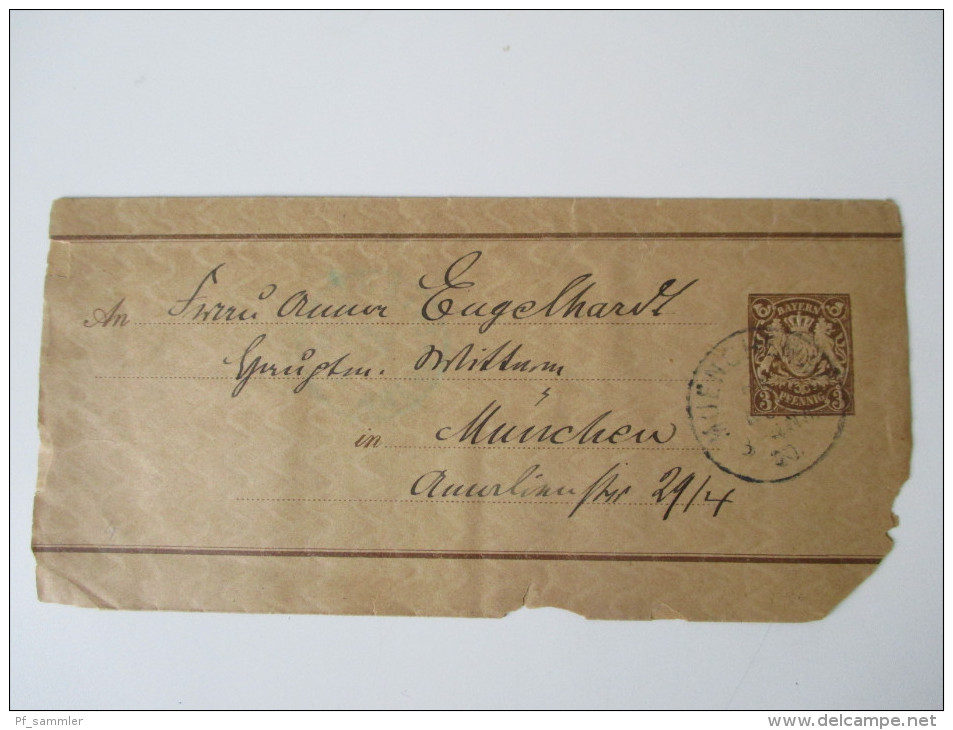 An Frau Anna Engelhardt
Hauptm. Wittwe
in München
Amalienstr 29/4
BAYERN
3 3
PFENNIG
MUENCHEN
90.
Pf_sammler
www.delcampe.net